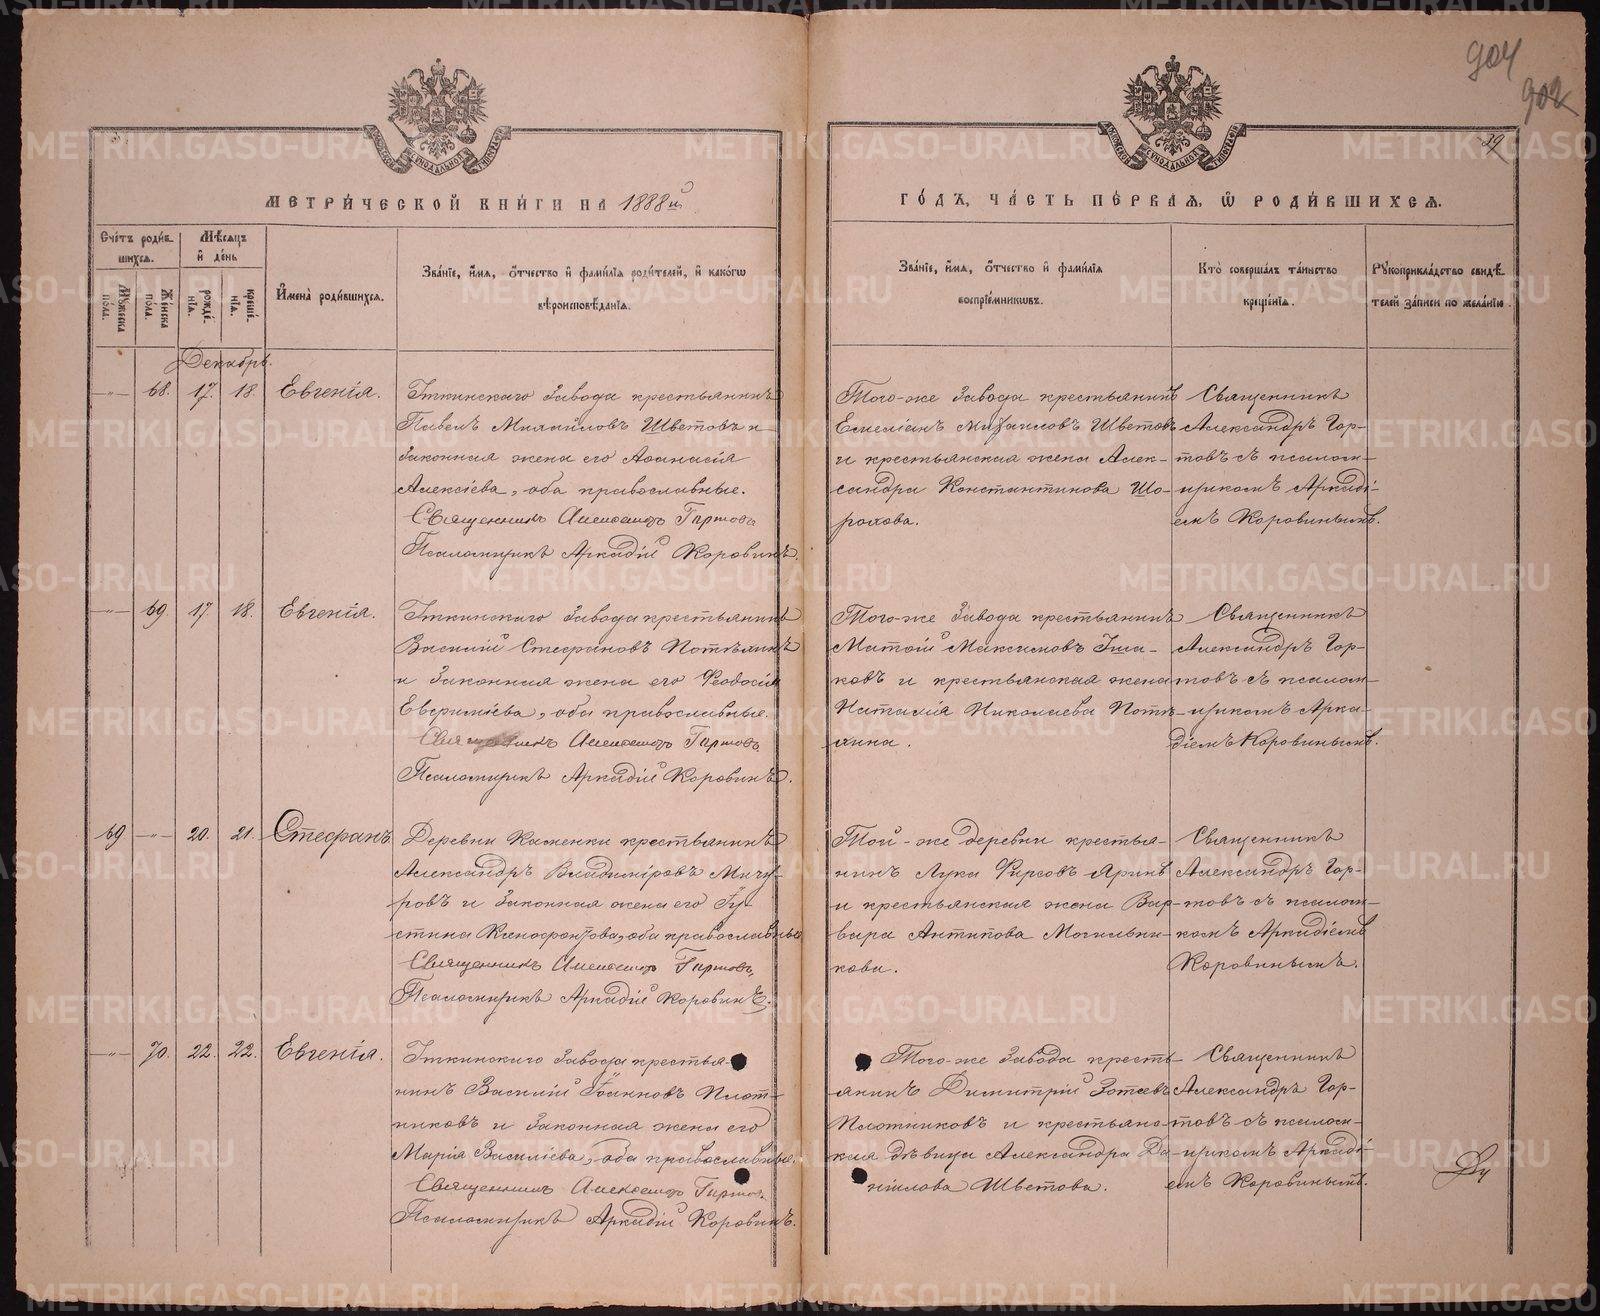 904
902
39
МЕТРИ́ЧЕСКОЙ КНИ́ГИ НА 1888й
ГО́ДЪ, ЧА́СТЬ ПЕ́РВАѦ, Ѡ҆ РОДИ́ВШИХСѦ.
Сче́тъ роди́в-
шихсѧ.
Мѣ́сѧцъ
и҆ де́нь
Мꙋ́жеска
по́ла.
Же́нска
по́ла.
рожде́-
нїѧ.
креще́-
нїѧ.
И҆мена̀ роди́вшихсѧ.
Зва́нїе, и҆́мѧ, ѻ҆́тчество и҆ фами́лїѧ роди́телей, и҆ како́гѡ
вѣроисповѣ́данїѧ.
Зва́нїе, и҆́мѧ, ѻ҆́тчество и҆ фами́лїѧ
воспрїе́мникѡвъ.
Кто̀ соверша́лъ та́инство
креще́нїѧ.
Рꙋкоприкла́дство свидѣ́-
телей за́писи по жела́нїю.
Декабрь.
-"- 68. 17. 18. Евгенія.
Иткинскаго завода крестьянинъ
Павелъ Михайловъ Шветовъ и
законная жена его Аѳанасія
Алексіева, оба православные.
Священникъ Александръ Гортовъ
Псаломщикъ Аркадій Коровинъ.
Того-же завода крестьянинъ
Емеліанъ Михаиловъ Шветовъ
и крестьянская жена Алек-
сандра Константинова Шо-
рохова.
Священникъ
Александръ Гор-
товъ съ псалом-
щикомъ Аркаді-
емъ Коровинымъ.
-"- 69 17 18. Евгенія.
Иткинскаго завода крестьянинъ
Василій Стефановъ Потѣлинъ
и законная жена его Ѳеодосія
Евфиміева, оба православные.
Священникъ Александръ Гортовъ
Псаломщикъ Аркадій Коровинъ.
Того-же завода крестьянинъ
Матѳій Максимовъ Иша-
ковъ и крестьянская жена
Наталія Николаева Потѣ-
лина.
Священникъ
Александръ Гор-
товъ съ псалом-
щикомъ Арка-
діемъ Коровинымъ.
69 -"- 20. 21. Стефанъ.
Деревни Каменки крестьянинъ
Александръ Владиміровъ Мичу-
ровъ и законная жена его Іу-
стина Ксенофонтова, оба православные
Священникъ Александръ Гортовъ,
Псаломщикъ Аркадій Коровинъ.
Той-же деревни крестья-
нинъ Лука Фирсовъ Яринъ
и крестьянская жена Вар-
вара Антипова Могильни-
кова.
Священникъ
Александръ Гор-
товъ съ псалом-
комъ Аркадіемъ
Коровинымъ.
-"- 70. 22. 22. Евгенія.
Иткинскаго завода крестья-
нинъ Василій Іоанновъ Плот-
никовъ и законная жена его
Марія Василіева, оба православные.
Священникъ Александръ Гортовъ
Псаломщикъ Аркадій Коровинъ.
Того-же завода кресть-
янинъ Димитрій Зотеевъ
Плотниковъ и крестьянс-
кая дѣвица Александра Да-
ніилова Шветова.
Священникъ
Александръ Гор-
товъ съ псалом-
щикомъ Аркаді-
емъ Коровинымъ.
METRIKI.GASO-URAL.RU